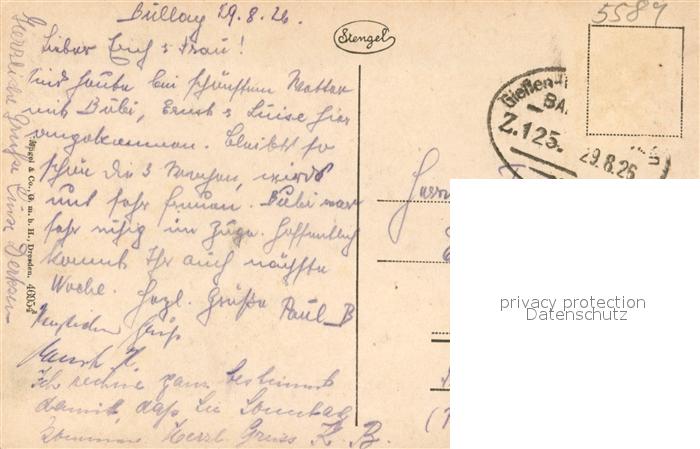 Bullay 29.8.26.
Lieber Erich & Frau!
Sind heute bei schönstem Wetter
mit Bubi, Ernst & Luise hier
angekommen. Bleibt so
schön die 3 Wochen, wird
uns sehr freuen. Bubi war
sehr ruhig im Zuge. Hoffentlich
kommt Ihr auch nächste
Woche. Herzl. Grüße Paul B
Gruß
Ernst H.
Ich rechne ganz bestimmt
damit, daß Sie Sonntag
kommen Herzl. Gruss K. B.
Herzliche Grüße Luise
Stengel & Co., G. m. b. H., Dresden. 46954
Stengel
5584
Gießen
BA
Z.125.
29.8.26
Herrn
privacy protection
Datenschutz